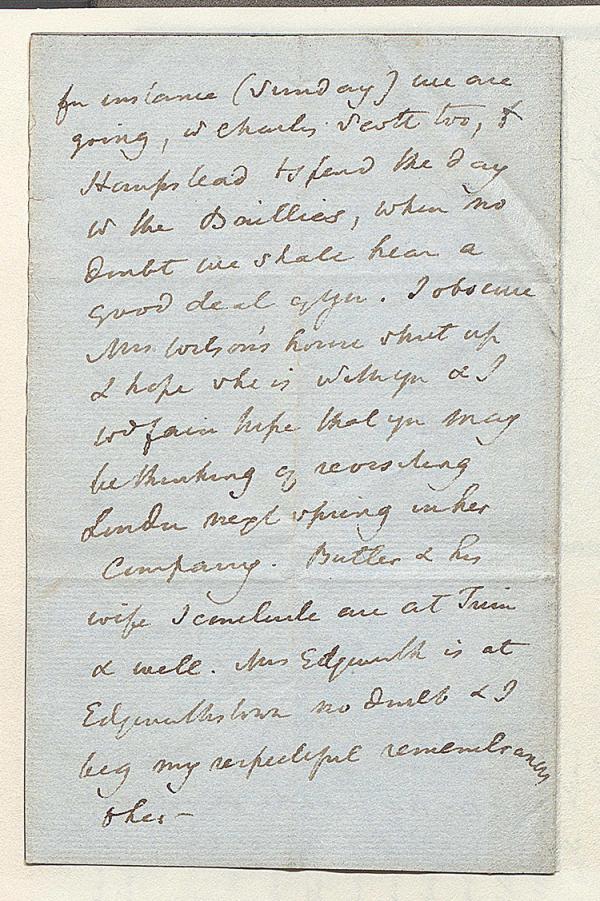 for instance (Sunday) we are
going, w Charles Scott too, to
Hampstead to spend the day
w the Baillies, when no
doubt we shall hear a
good deal of you. I observe
Mrs Wilson's house shut up
& hope she is with you & I
wd fain hope that you may
be thinking of revisiting
London next spring in her
Company. Butler & his
wife I conclude are at Trim
& well. Mrs Edgeworth is at
Edgeworthstown no doubt & I
beg my respectful remembrances
to her –